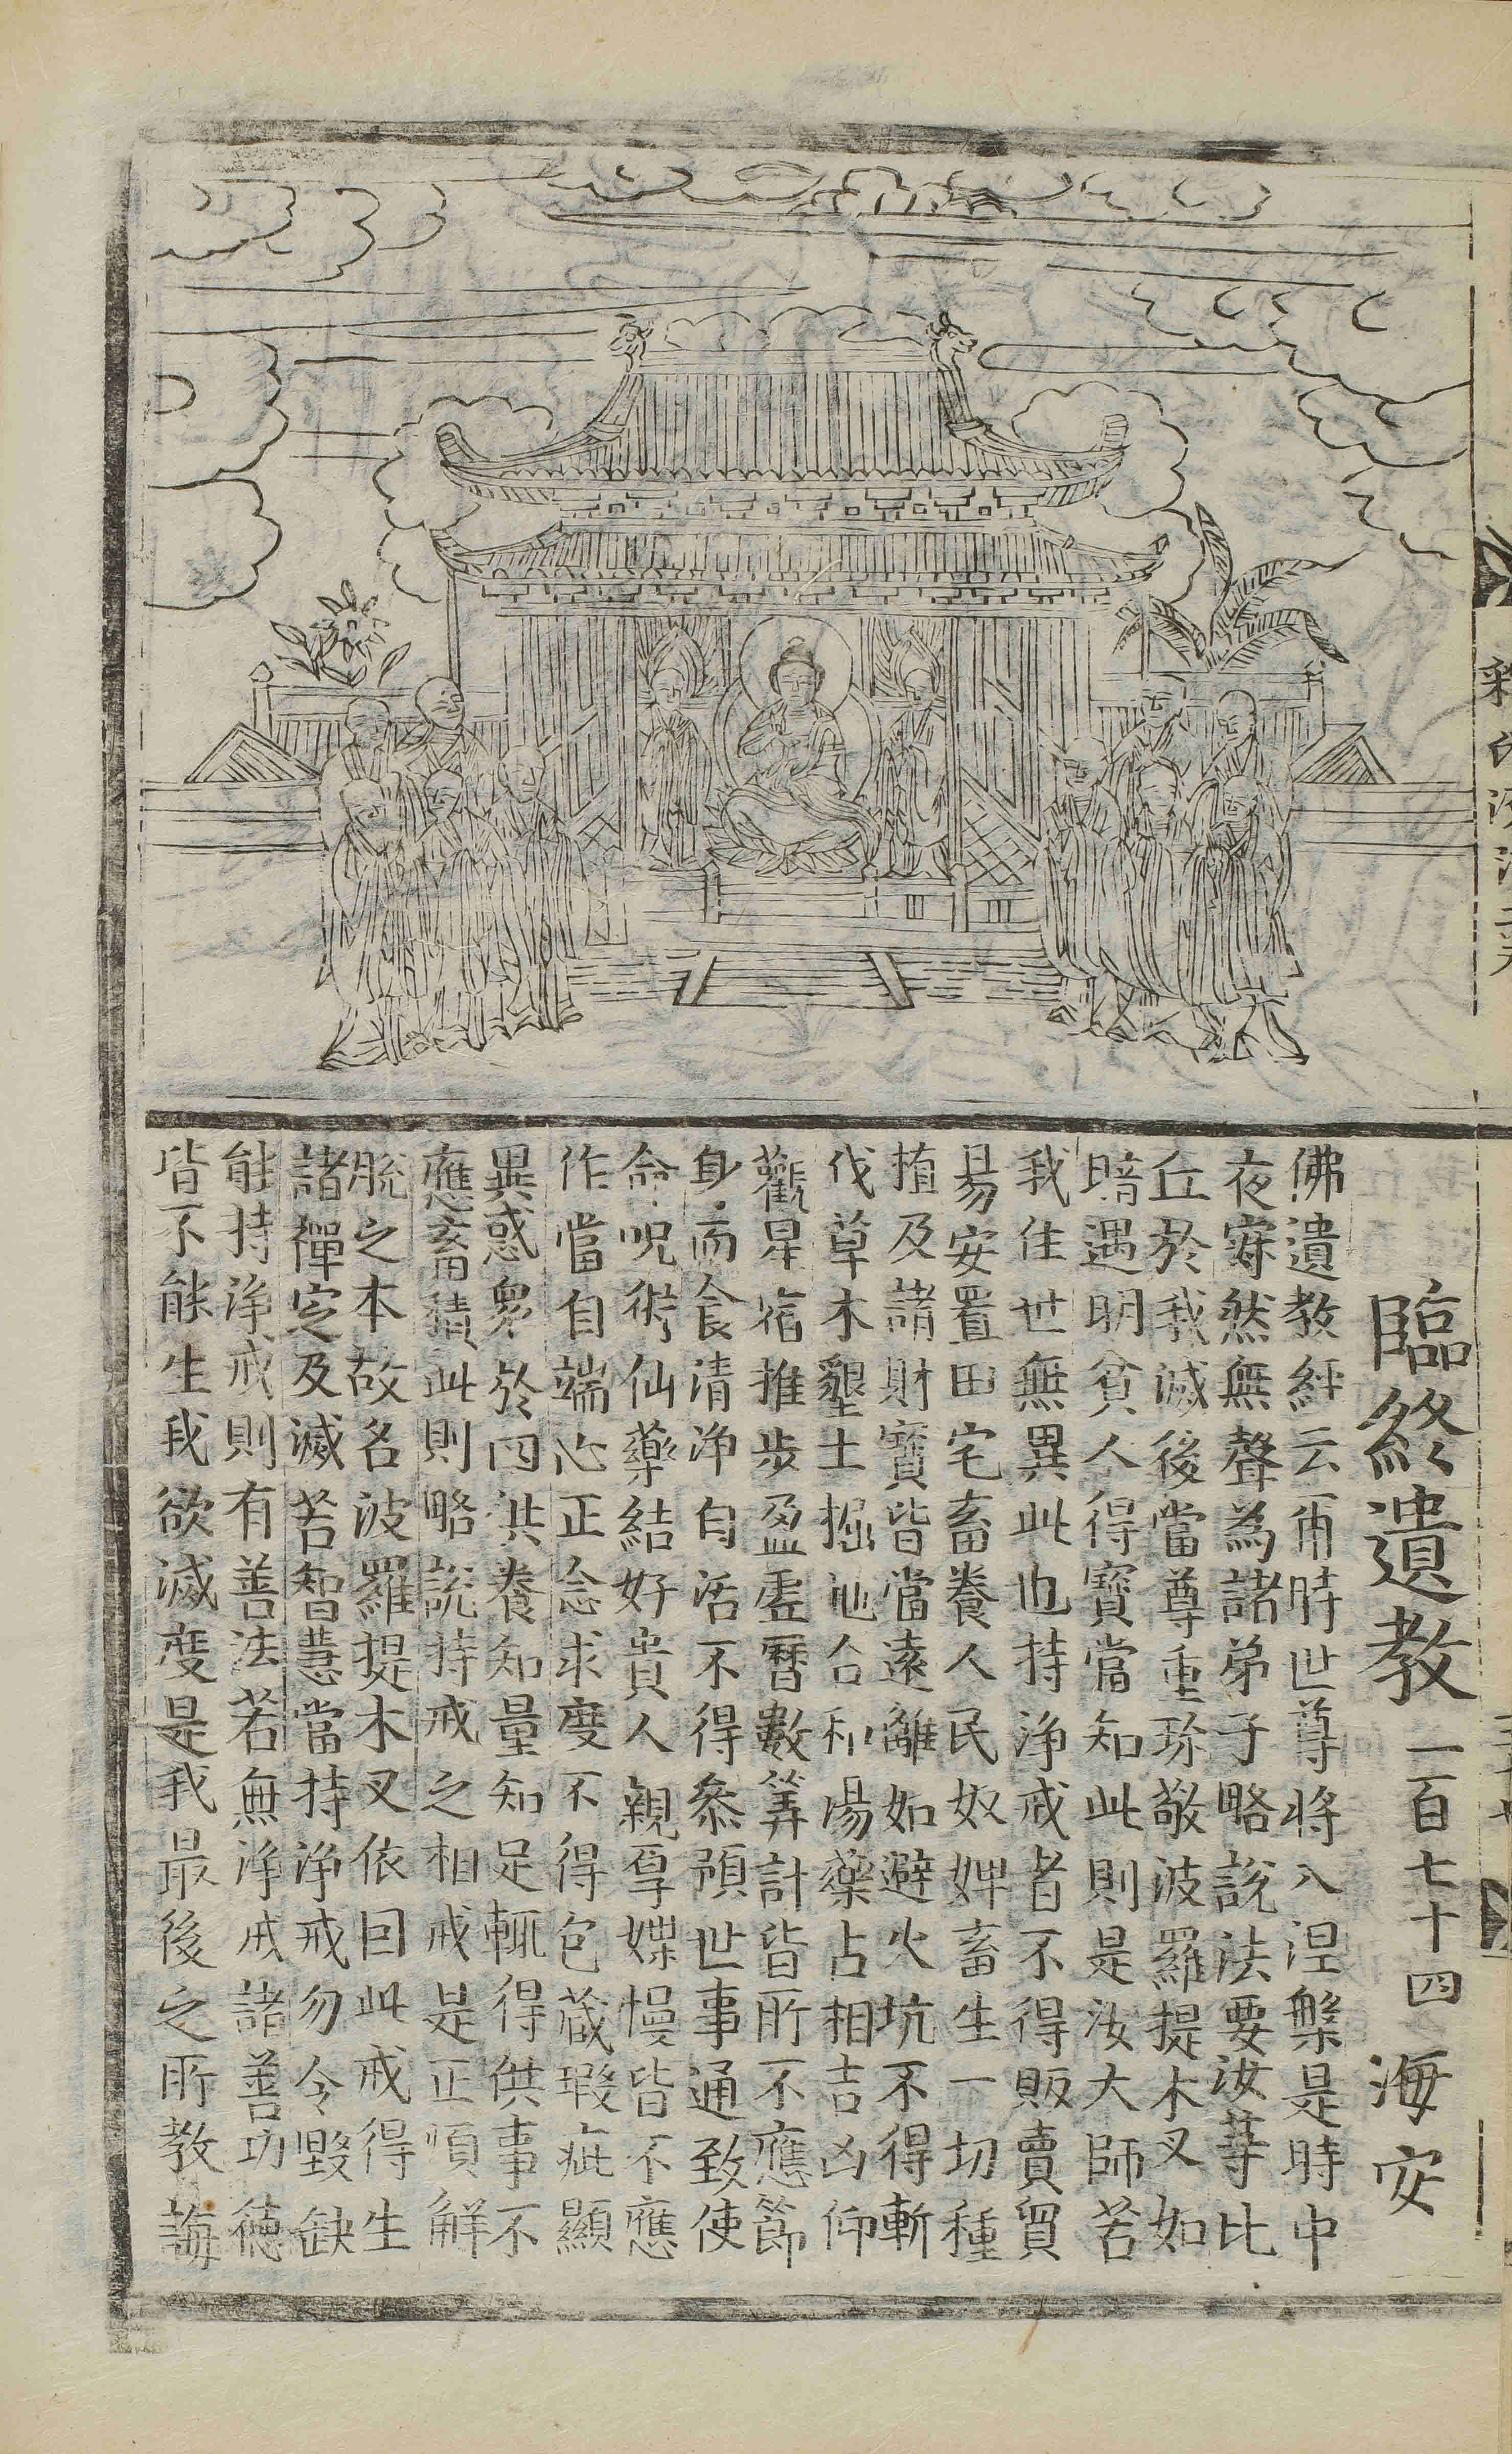 臨終遺教 一百七十四 海安
佛遺教經云爾時世尊將入涅槃是時中
夜寂然無聲為諸弟子略說法要汝等比
丘於我滅後當尊重珍敬波羅提木叉如
暗遇明貧人得寶當知此則是汝大師若
我住世無異此也持淨戒者不得販賣貿
易安置田宅畜養人民奴婢畜生一切種
植及諸財寶皆當遠離如避火坑不得斬
伐草木墾土掘地合和湯藥占相吉凶仰
觀星宿推步盈虛曆數筭計皆所不應節
身而食清淨自活不得叅預世事通致使
命呪術仙藥結好貴人親厚媟慢皆不應
作當自端心正念求度不得包藏瑕疵顯
異惑衆於四供養知量知足輒得供事不
應畜積此則略說持戒之相戒是正順解
脫之本故名波羅提木叉依因此戒得生
諸禪定及滅苦智慧當持淨戒勿令毀缺
能持淨戒則有善法若無淨戒諸善功德
皆不能生我欲滅度是我最後之所教誨